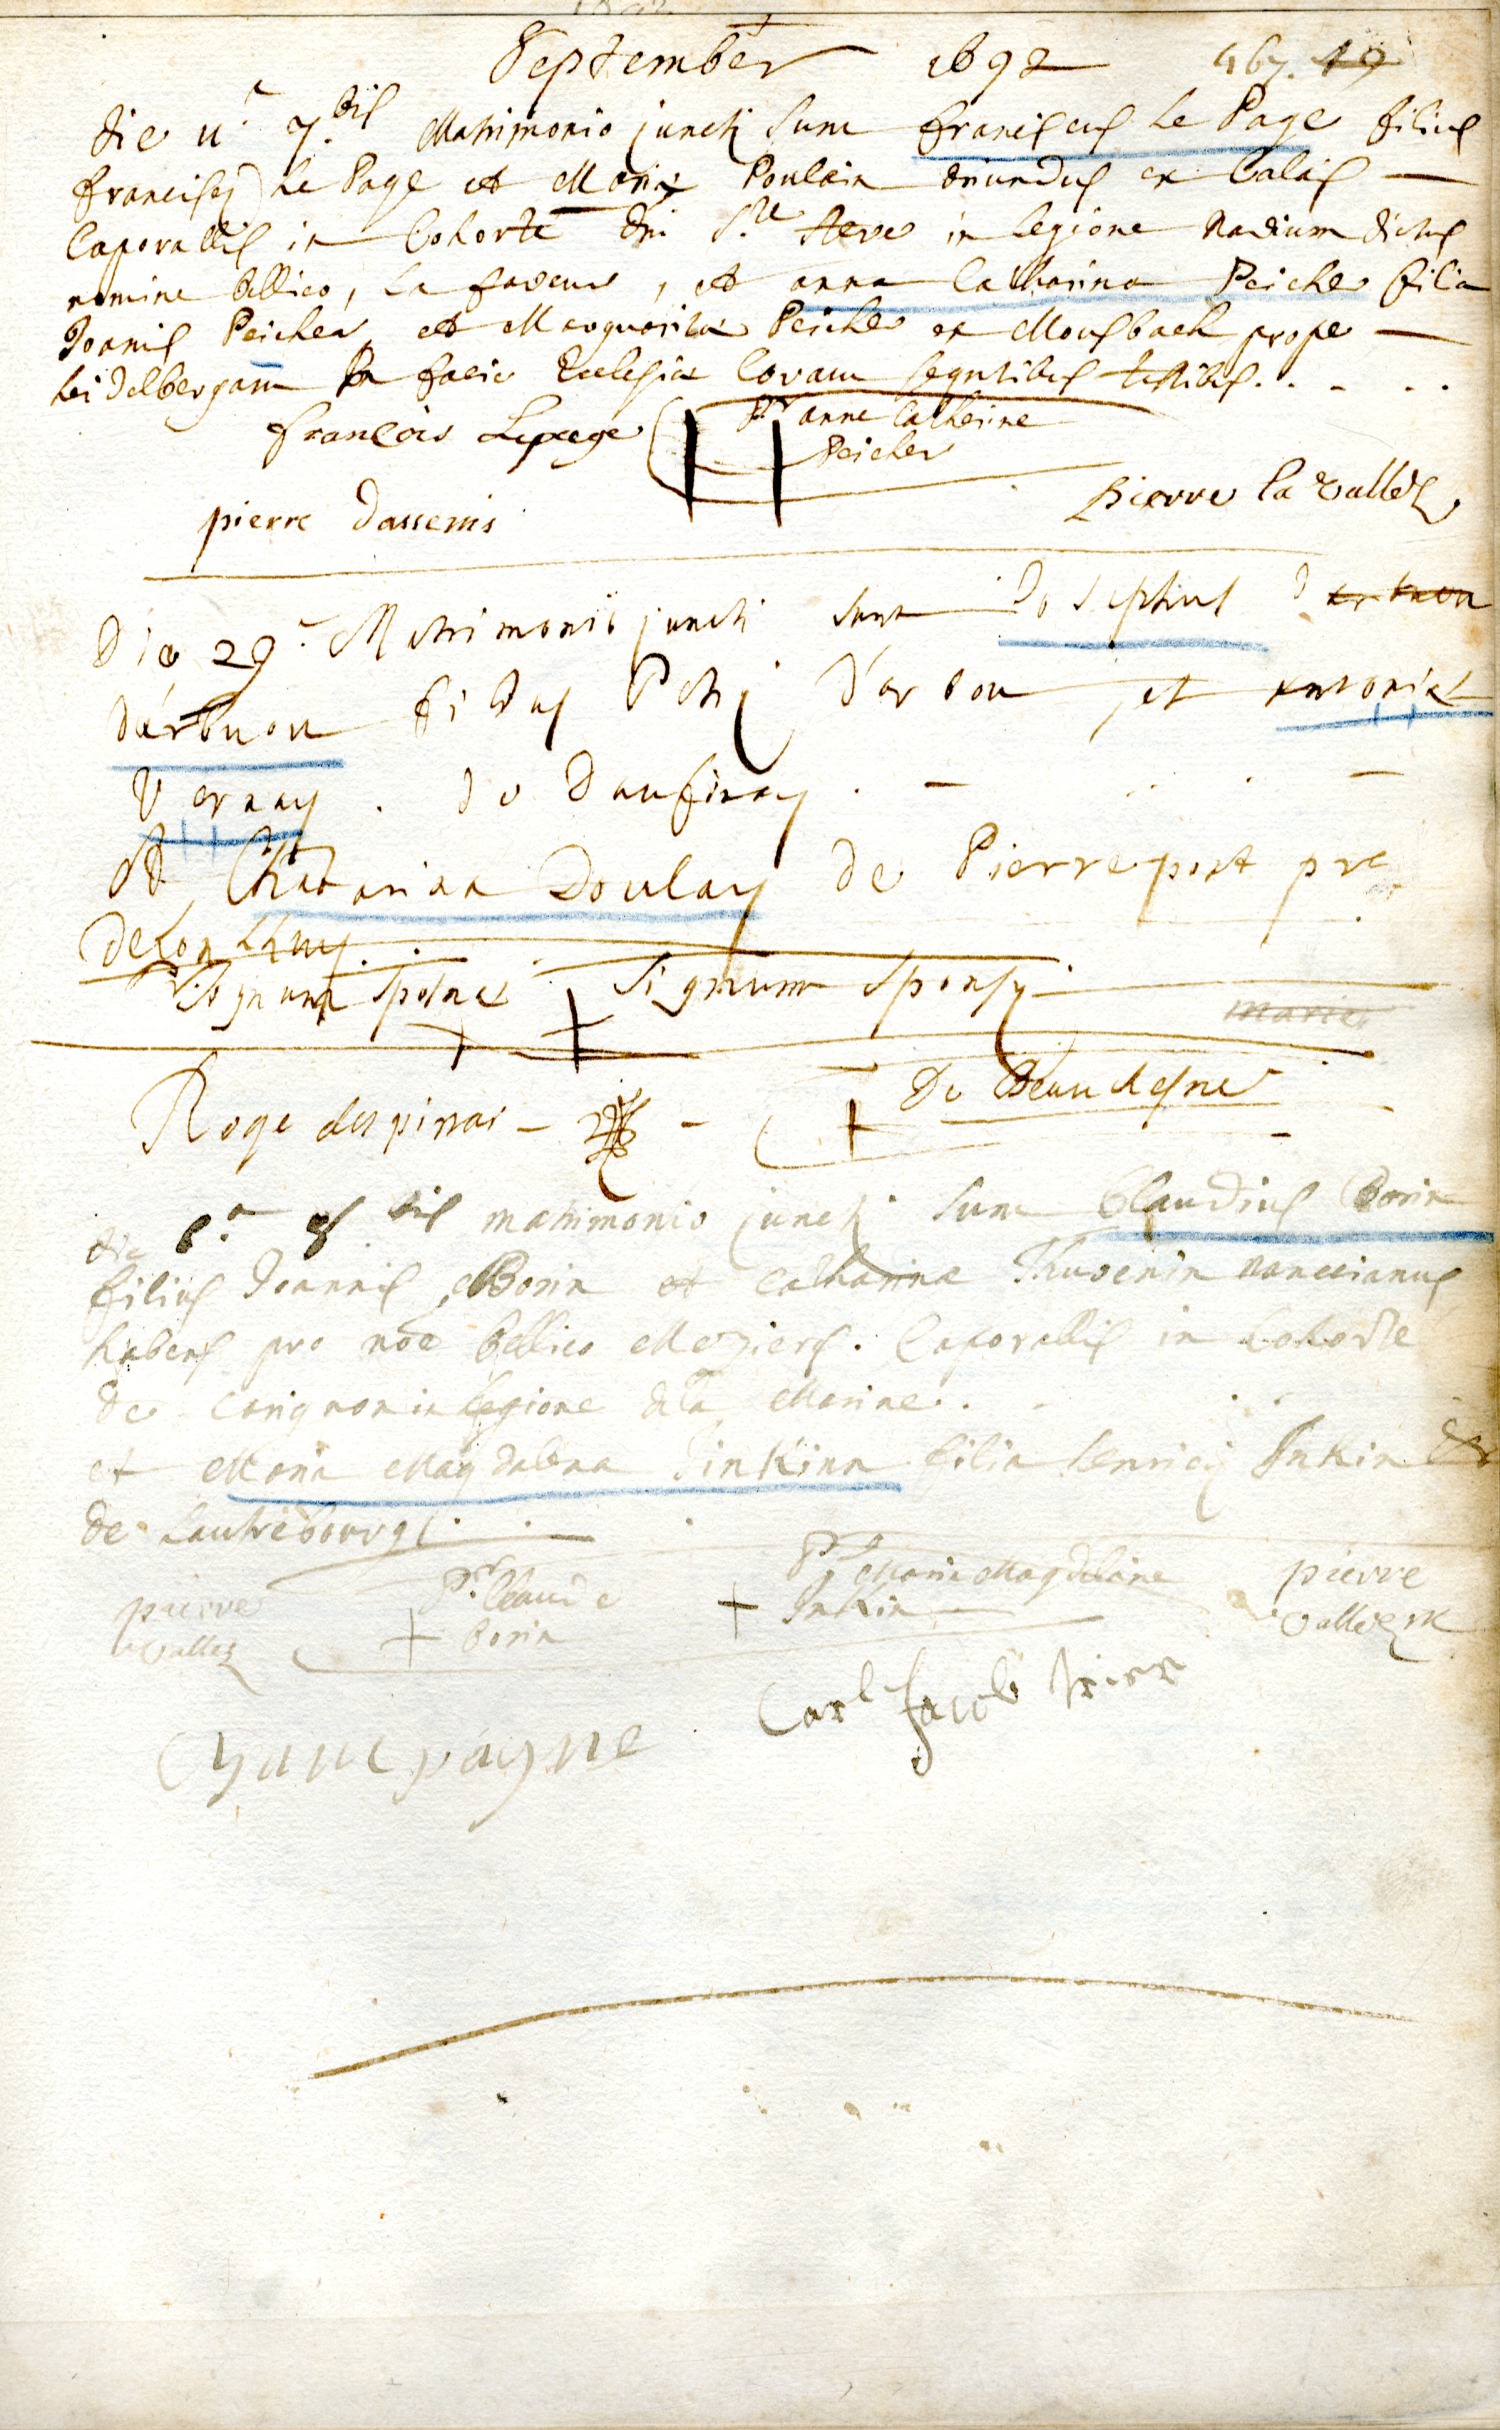 September 1692 467. 19
die 11.ª 7.bris Matrimonio juncti sunt Franciscus Le Page filius
Francisci Le Page et Mariæ Poulain oriundus ex Calais —
Caporallis in Cohorte Dni S.te in Legione dictus
nomine bellico, La faveur, et anna Catharina Peicher filia
Joanis Peicher et Margaritæ Peicher ex Mousbach prope —
heidelbergam in facie Ecclesiæ Coram seqntibus testibus. . - . .
françois Lepage anne Catherine
Peicher
pierre dassenis pierre la vallez
Die 29.ª Matrimonio juncti sunt Josephus
d'arbuon filius Petri d'arbon et Antoniæ
Vernay . de Daufinay . —
et Chatarina Doulay de Pierrepont pre
de Lonthuy . .
Signum sponsæ Signum sponsy
marie
Roge despinai - De Beau
die 8.ª 8.bris matrimonio juncti sunt Claudius Borin
filius Joannis Borin et Catharinæ Thuvenin nanceianus
habens pro noe bellico Meziers. Caporallis in Cohorte
de Carignon in legione de la Marine. .
et Maria Magdalena Jinkinn filia henrici Inkin
de Lautrebourg .
pierre Claude Marie Magdelaine pierre
vallez Borin Inkin
Carl Jacob
Champagne